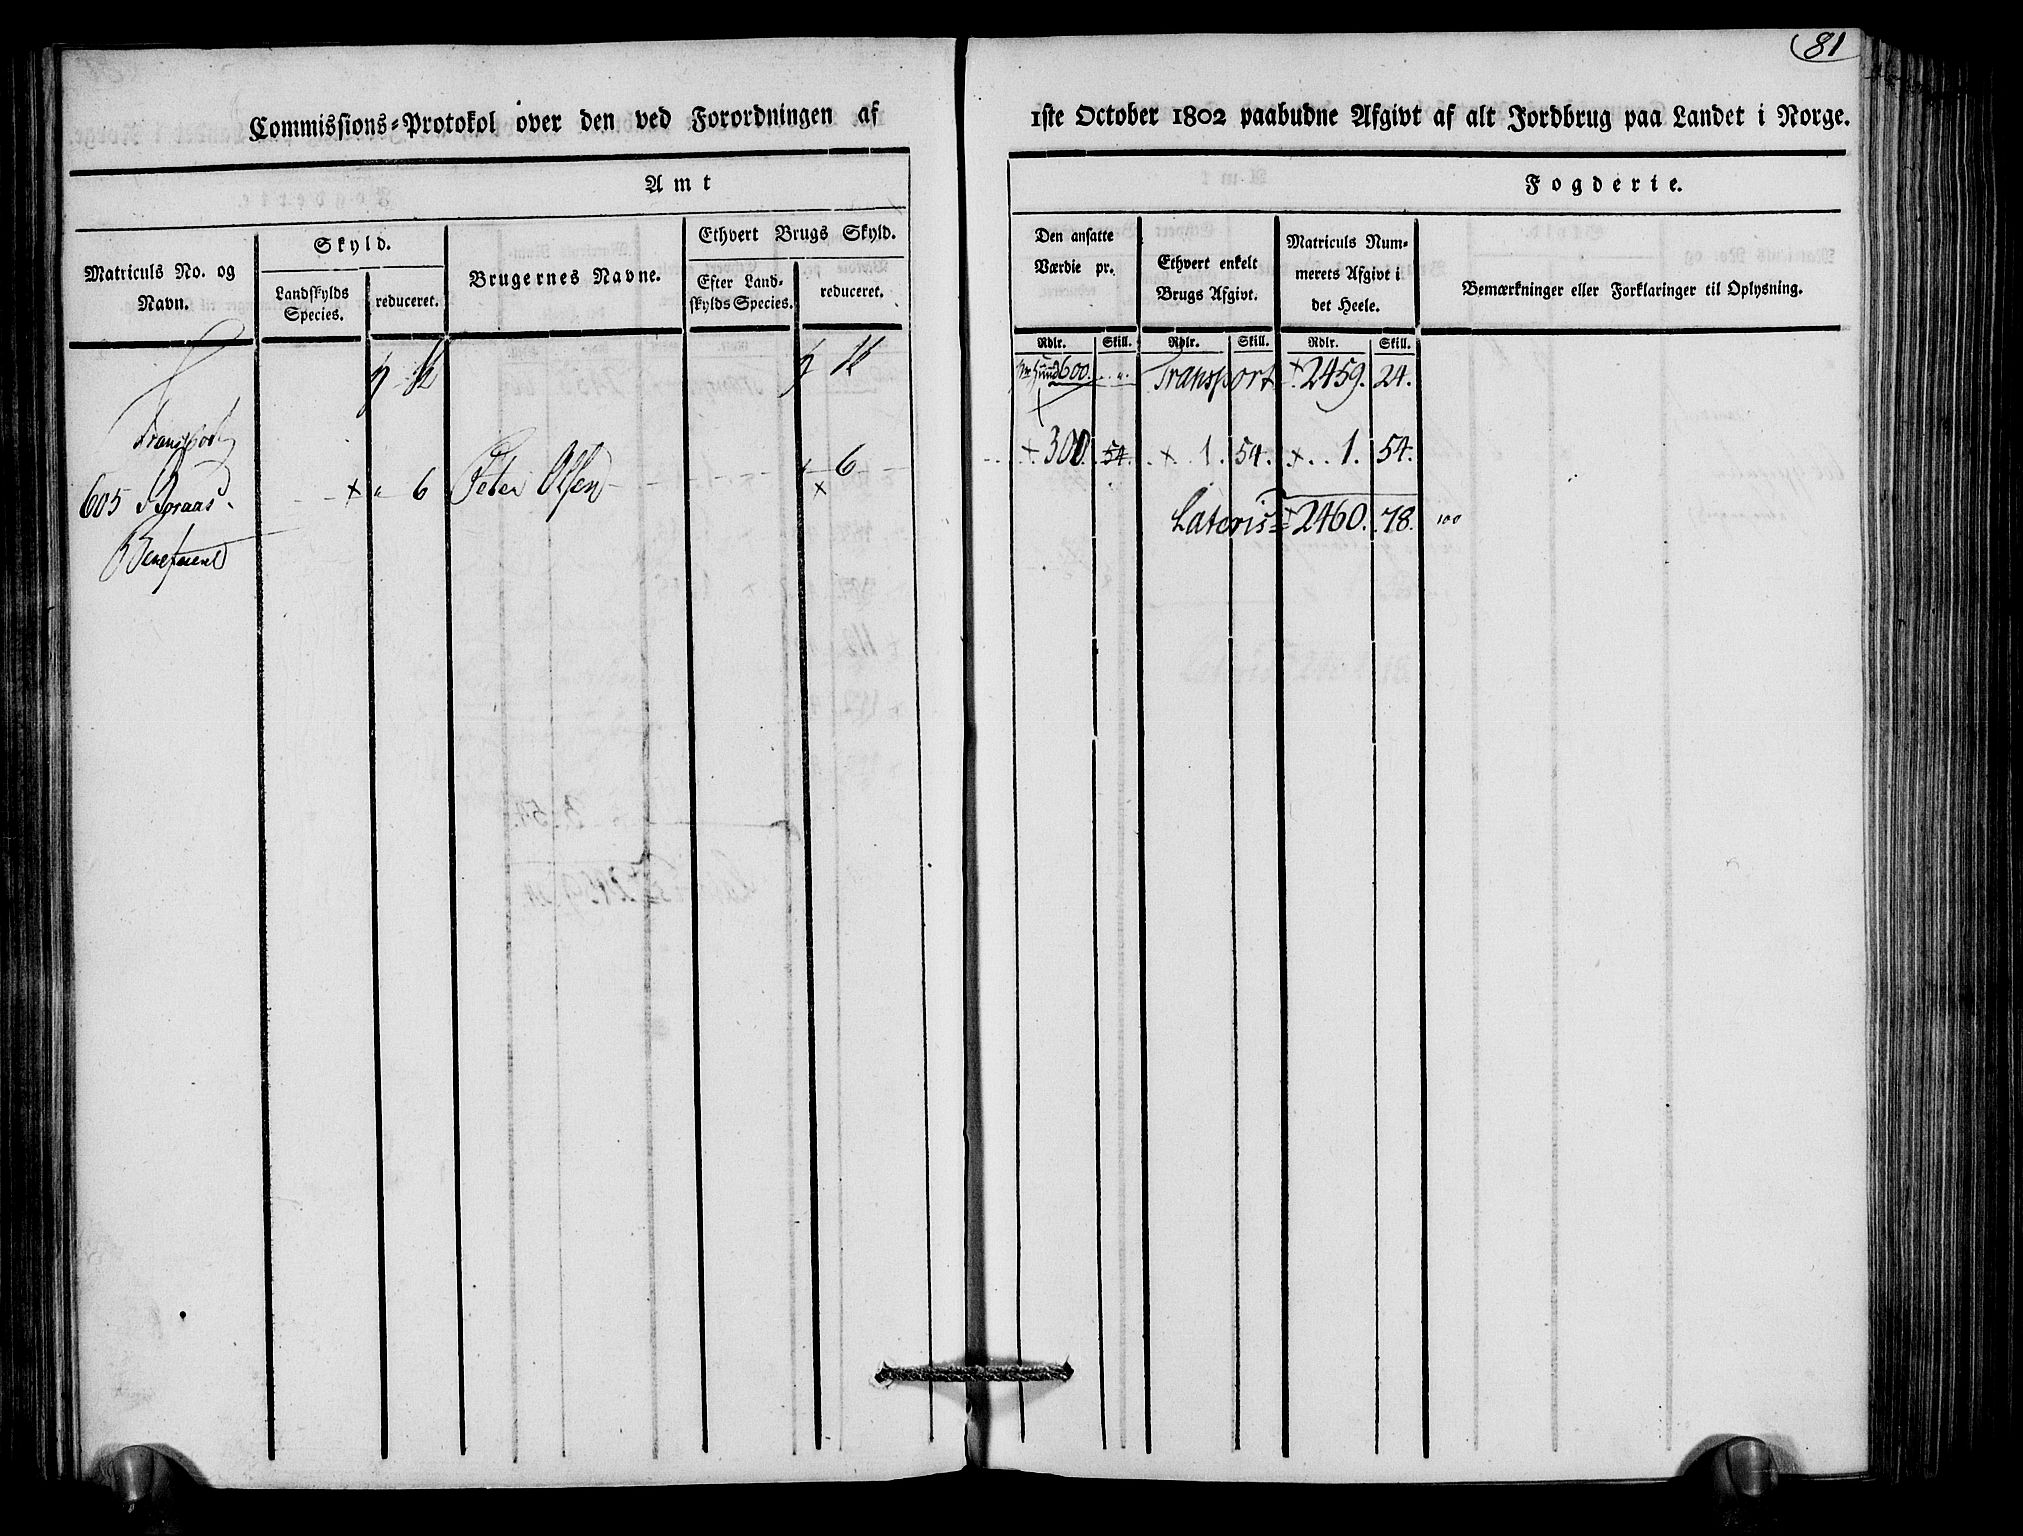 81
Commissions-Protokol over den ved Forordningen af 1ste October 1802 paabudne Afgivt af alt Jordbrug paa Landet i Norge.
Amt
Fogderie.
Matriculs No. og Navn.
Skyld.
Landskylds Species.
reduceret.
Brugernes Navne.
Ethvert Brugs Skyld.
Efter Landskylds Species.
reduceret.
Den ansatte Værdie pr.
Ethvert enkelt Brugs Afgivt.
Matriculs Nummerets Afgivt i det Heele.
Bemærkninger eller Forklaringer til Oplysning.
Rdlr. Skill. Rdlr. Skill. Rdlr. Skill.
600. Transport 2459. 24.
Transport
605 × " 6 Peter Olsen × 6 × 300. 54. × 1. 54. × 1. 54.
Lateris 2460. 78. 100